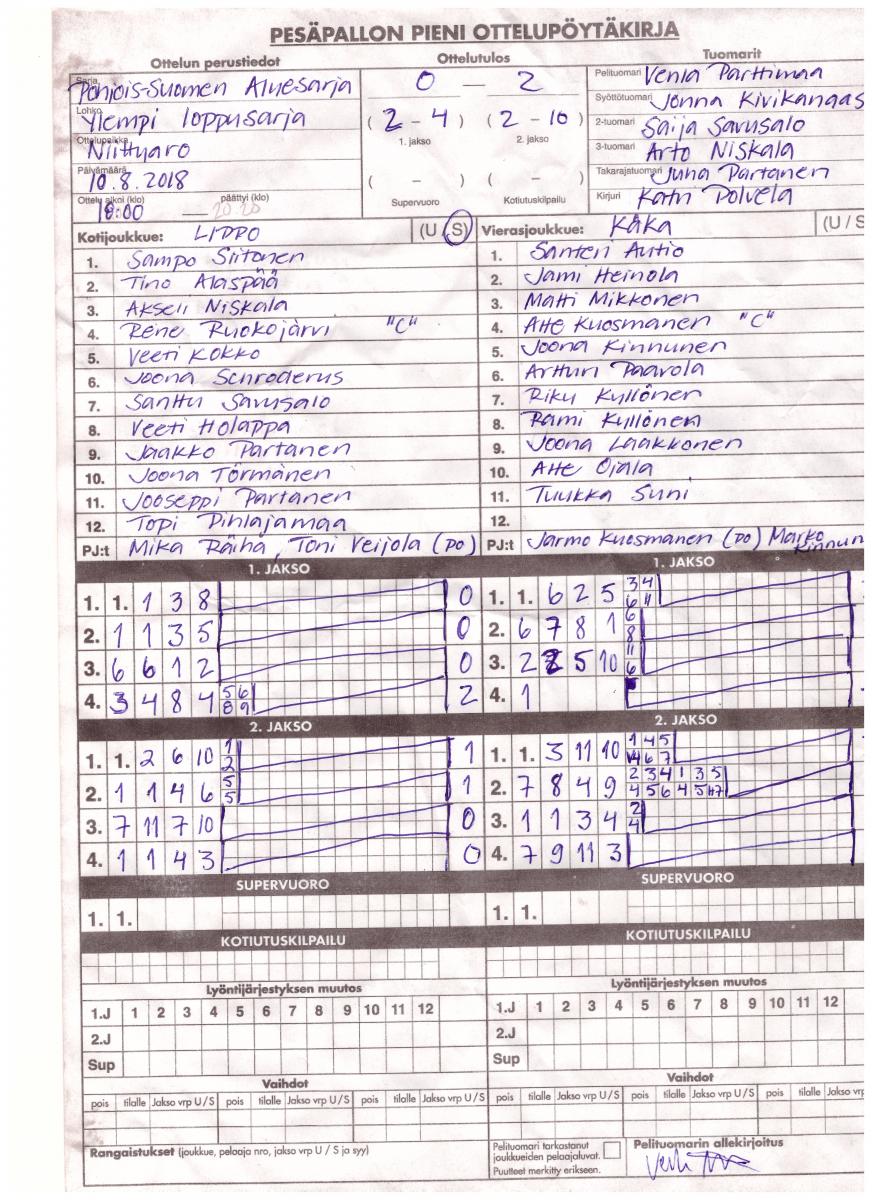 PESÄPALLON PIENI OTTELUPÖYTÄKIRJA
Ottelun perustiedot
Sarja Pohjois-Suomen Aluesarja
Lohko Ylempi loppusarja
Ottelupaikka Niittyaro
Päivämäärä 10.8.2018
Ottelu alkoi (klo) 18:00 — päättyi (klo) 20:20
Ottelutulos
0 — 2
( 2 - 4 ) ( 2 - 10 )
1. jakso 2. jakso
( - ) ( - )
Supervuoro Kotiutuskilpailu
Tuomarit
Pelituomari Venla Parttimaa
Syöttötuomari Jonna Kivikangas
2-tuomari Saija Savusalo
3-tuomari Arto Niskala
Takarajatuomari Juha Partanen
Kirjuri Katri Polvela
Kotijoukkue: LIPPO (U / S)
1. Sampo Siitonen
2. Tino Alaspää
3. Akseli Niskala
4. Rene Ruokojärvi "C"
5. Veeti Kokko
6. Joona Schroderus
7. Santtu Savusalo
8. Veeti Holappa
9. Jaakko Partanen
10. Joona Törmänen
11. Jooseppi Partanen
12. Topi Pihlajamaa
PJ:t Mika Räihä, Toni Veijola (PO)
Vierasjoukkue: KäKa (U / S
1. Santeri Autio
2. Jami Heinola
3. Matti Mikkonen
4. Atte Kuosmanen "C"
5. Joona Kinnunen
6. Artturi Paavola
7. Riku Kyllönen
8. Rami Kyllönen
9. Joona Laakkonen
10. Atte Ojala
11. Tuukka Suni
12.
PJ:t Jarmo Kuosmanen (PO) Marko Kinnun
1. JAKSO
1. 1. 1 3 8 0
2. 1 1 3 5 0
3. 6 6 1 2 0
4. 3 4 8 4 5 6 8 9 2
2. JAKSO
1. 1. 2 6 10 1 2 1
2. 1 1 4 6 5 5 1
3. 7 11 7 10 0
4. 1 1 4 3 0
SUPERVUORO
1. 1.
KOTIUTUSKILPAILU
Lyöntijärjestyksen muutos
1.J 1 2 3 4 5 6 7 8 9 10 11 12
2.J
Sup
Vaihdot
pois tilalle Jakso vrp U / S pois tilalle Jakso vrp U / S pois tilalle Jakso vrp U / S
Rangaistukset (joukkue, pelaaja nro, jakso vrp U / S ja syy)
1. JAKSO
1. 1. 6 2 5 3 4 6 11
2. 6 7 8 1 6 8
3. 2 5 10 11 6
4. 1
2. JAKSO
1. 1. 3 11 10 1 4 5 6 7
2. 7 8 4 9 2 3 4 1 3 5 4 5 6 4 5
3. 1 1 3 4 2 4
4. 7 9 11 3
SUPERVUORO
1. 1.
KOTIUTUSKILPAILU
Lyöntijärjestyksen muutos
1.J 1 2 3 4 5 6 7 8 9 10 11 12
2.J
Sup
Vaihdot
pois tilalle Jakso vrp U / S pois tilalle Jakso vrp U / S pois tilalle Jakso vrp
Pelituomari tarkastanut
joukkueiden pelaajaluvat.
Puutteet merkitty erikseen.
Pelituomarin allekirjoitus